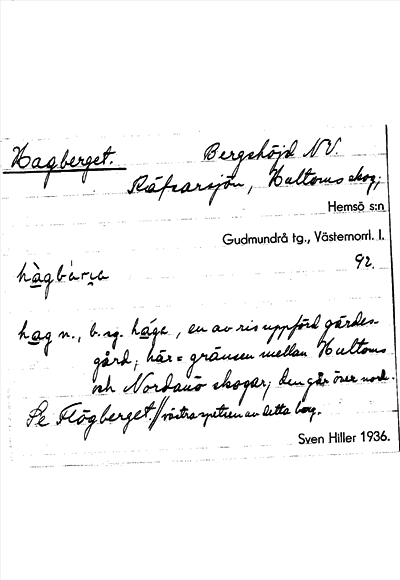 Hagberget. Bergshöjd NV.
Räfsarsjön, Hultoms skog;
Hemsö s:n
Gudmundrå tg., Västernorrl. l.
hàgbárıa 92.
hag n., b. sg. hága, en av ris uppförd gärdes-
gård; här = gränsen mellan Hultoms
och Nordanö skogar; den går över nord-
Se Flögberget. // västra spetsen av detta berg.
Sven Hiller 1936.